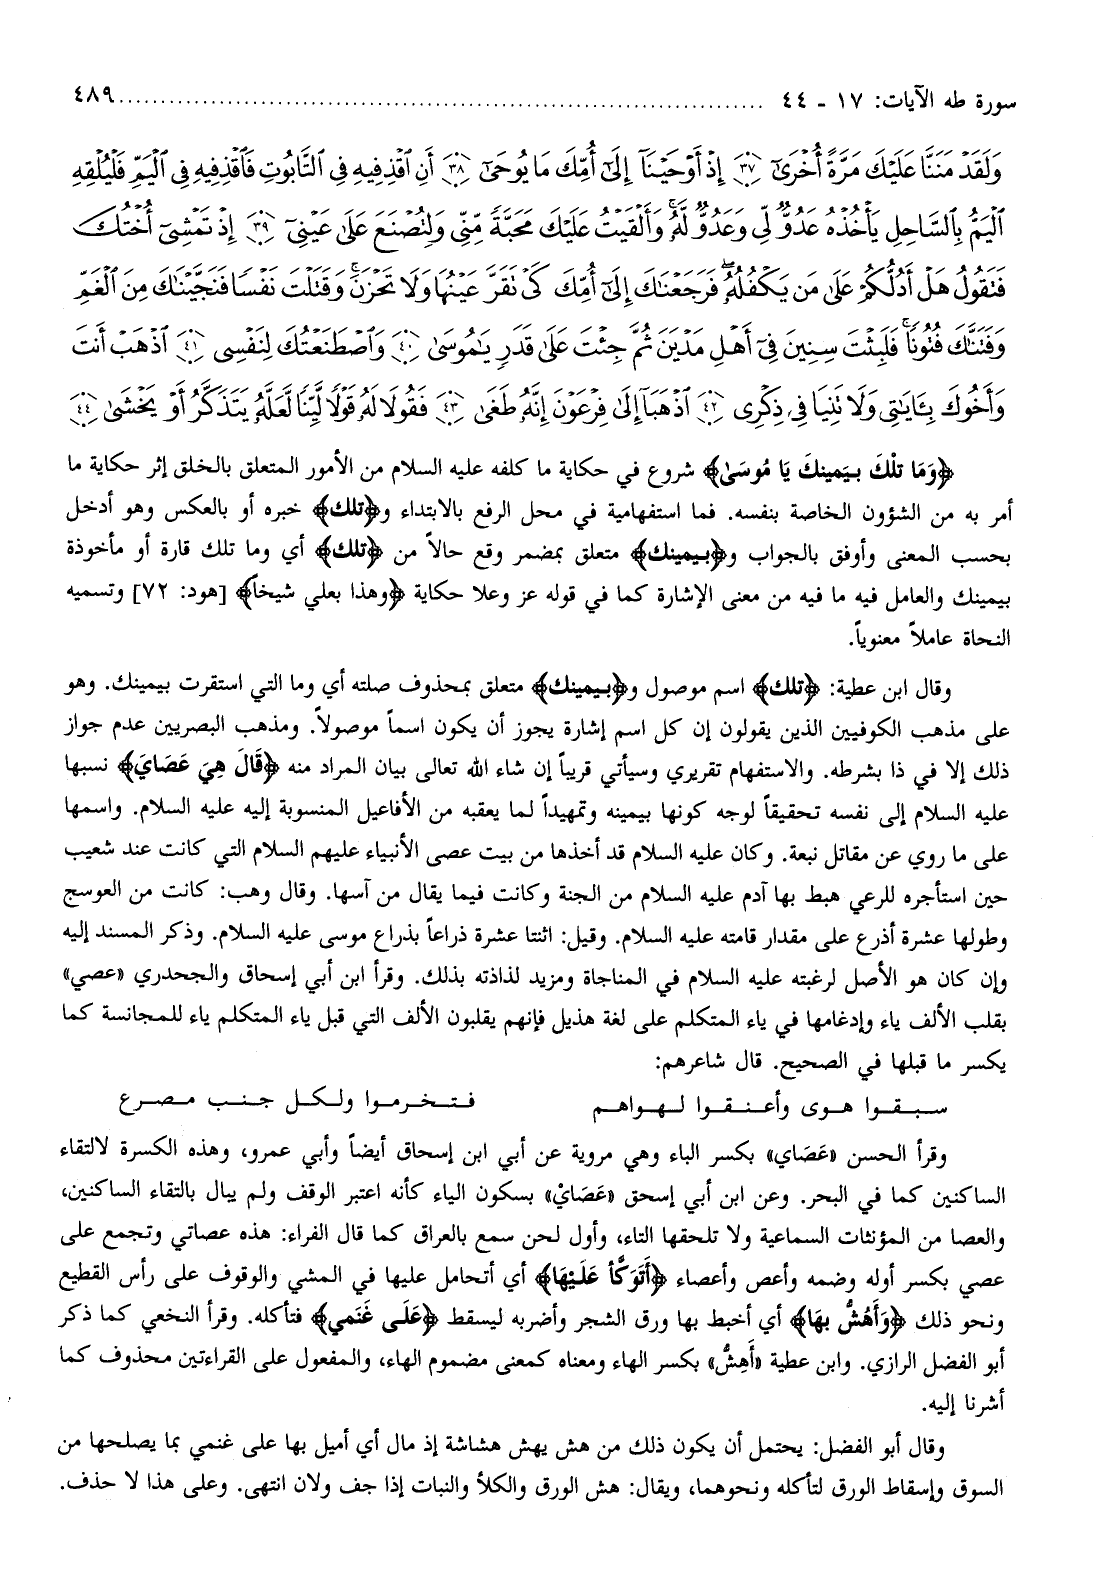 سورة طه الآيات: ١٧ - ٤٤ ........................................................................ ٤٨٩
وَلَقَدْ مَنَنَّا عَلَيْكَ مَرَّةً أُخْرَىٰٓ ٣٧ إِذْ أَوْحَيْنَآ إِلَىٰٓ أُمِّكَ مَا يُوحَىٰٓ ٣٨ أَنِ ٱقْذِفِيهِ فِى ٱلتَّابُوتِ فَٱقْذِفِيهِ فِى ٱلْيَمِّ فَلْيُلْقِهِ
ٱلْيَمُّ بِٱلسَّاحِلِ يَأْخُذْهُ عَدُوٌّ لِّى وَعَدُوٌّ لَّهُۥ وَأَلْقَيْتُ عَلَيْكَ مَحَبَّةً مِّنِّى وَلِتُصْنَعَ عَلَىٰ عَيْنِىٓ ٣٩ إِذْ تَمْشِىٓ أُخْتُكَ
فَتَقُولُ هَلْ أَدُلُّكُمْ عَلَىٰ مَن يَكْفُلُهُۥ فَرَجَعْنَٰكَ إِلَىٰٓ أُمِّكَ كَىْ تَقَرَّ عَيْنُهَا وَلَا تَحْزَنَ وَقَتَلْتَ نَفْسًا فَنَجَّيْنَٰكَ مِنَ ٱلْغَمِّ
وَفَتَنَّٰكَ فُتُونًا فَلَبِثْتَ سِنِينَ فِىٓ أَهْلِ مَدْيَنَ ثُمَّ جِئْتَ عَلَىٰ قَدَرٍ يَٰمُوسَىٰ ٤٠ وَٱصْطَنَعْتُكَ لِنَفْسِى ٤١ ٱذْهَبْ أَنتَ
وَأَخُوكَ بِـَٔايَٰتِى وَلَا تَنِيَا فِى ذِكْرِى ٤٢ ٱذْهَبَآ إِلَىٰ فِرْعَوْنَ إِنَّهُۥ طَغَىٰ ٤٣ فَقُولَا لَهُۥ قَوْلًا لَّيِّنًا لَّعَلَّهُۥ يَتَذَكَّرُ أَوْ يَخْشَىٰ ٤٤
﴿وَمَا تلْكَ بيَمينكَ يَا مُوسَىٰ﴾ شروع في حكاية ما كلفه عليه السلام من الأمور المتعلق بالخلق إثر حكاية ما
أمر به من الشؤون الخاصة بنفسه. فما استفهامية في محل الرفع بالابتداء و﴿تلك﴾ خبره أو بالعكس وهو أدخل
بحسب المعنى وأوفق بالجواب و﴿بيمينك﴾ متعلق بمضمر وقع حالاً من ﴿تلك﴾ أي وما تلك قارة أو مأخوذة
بيمينك والعامل فيه ما فيه من معنى الإشارة كما في قوله عز وعلا حكاية ﴿وهذا بعلي شيخاً﴾ [هود: ٧٢] وتسميه
النحاة عاملاً معنوياً.
وقال ابن عطية: ﴿تلك﴾ اسم موصول و﴿بيمينك﴾ متعلق بمحذوف صلته أي وما التي استقرت بيمينك. وهو
على مذهب الكوفيين الذين يقولون إن كل اسم إشارة يجوز أن يكون اسماً موصولاً. ومذهب البصريين عدم جواز
ذلك إلا في ذا بشرطه. والاستفهام تقريري وسيأتي قريباً إن شاء الله تعالى بيان المراد منه ﴿قَالَ هِيَ عَصَايَ﴾ نسبها
عليه السلام إلى نفسه تحقيقاً لوجه كونها بيمينه وتمهيداً لما يعقبه من الأفاعيل المنسوبة إليه عليه السلام. واسمها
على ما روي عن مقاتل نبعة. وكان عليه السلام قد أخذها من بيت عصى الأنبياء عليهم السلام التي كانت عند شعيب
حين استأجره للرعي هبط بها آدم عليه السلام من الجنة وكانت فيما يقال من آسها. وقال وهب: كانت من العوسج
وطولها عشرة أذرع على مقدار قامته عليه السلام. وقيل: اثنتا عشرة ذراعاً بذراع موسى عليه السلام. وذكر المسند إليه
وإن كان هو الأصل لرغبته عليه السلام في المناجاة ومزيد لذاذته بذلك. وقرأ ابن أبي إسحاق والجحدري «عصي»
بقلب الألف ياء وإدغامها في ياء المتكلم على لغة هذيل فإنهم يقلبون الألف التي قبل ياء المتكلم ياء للمجانسة كما
يكسر ما قبلها في الصحيح. قال شاعرهم:
سبقوا هوى وأعنقوا لهواهم فتخرموا ولكل جنب مصرع
وقرأ الحسن «عَصَاي» بكسر الياء وهي مروية عن أبي ابن إسحاق أيضاً وأبي عمرو، وهذه الكسرة لالتقاء
الساكنين كما في البحر. وعن ابن أبي إسحق «عَصَايْ» بسكون الياء كأنه اعتبر الوقف ولم يبال بالتقاء الساكنين،
والعصا من المؤنثات السماعية ولا تلحقها التاء، وأول لحن سمع بالعراق كما قال الفراء: هذه عصاتي وتجمع على
عصي بكسر أوله وضمه وأعص وأعصاء ﴿أَتَوَكَّأ عَلَيْهَا﴾ أي أتحامل عليها في المشي والوقوف على رأس القطيع
ونحو ذلك ﴿وَأَهُشُّ بهَا﴾ أي أخبط بها ورق الشجر وأضربه ليسقط ﴿عَلَى غَنَمي﴾ فتأكله. وقرأ النخعي كما ذكر
أبو الفضل الرازي. وابن عطية «أَهِشُّ» بكسر الهاء ومعناه كمعنى مضموم الهاء، والمفعول على القراءتين محذوف كما
أشرنا إليه.
وقال أبو الفضل: يحتمل أن يكون ذلك من هش يهش هشاشة إذ مال أي أميل بها على غنمي بما يصلحها من
السوق وإسقاط الورق لتأكله ونحوهما، ويقال: هش الورق والكلأ والنبات إذا جف ولان انتهى. وعلى هذا لا حذف.